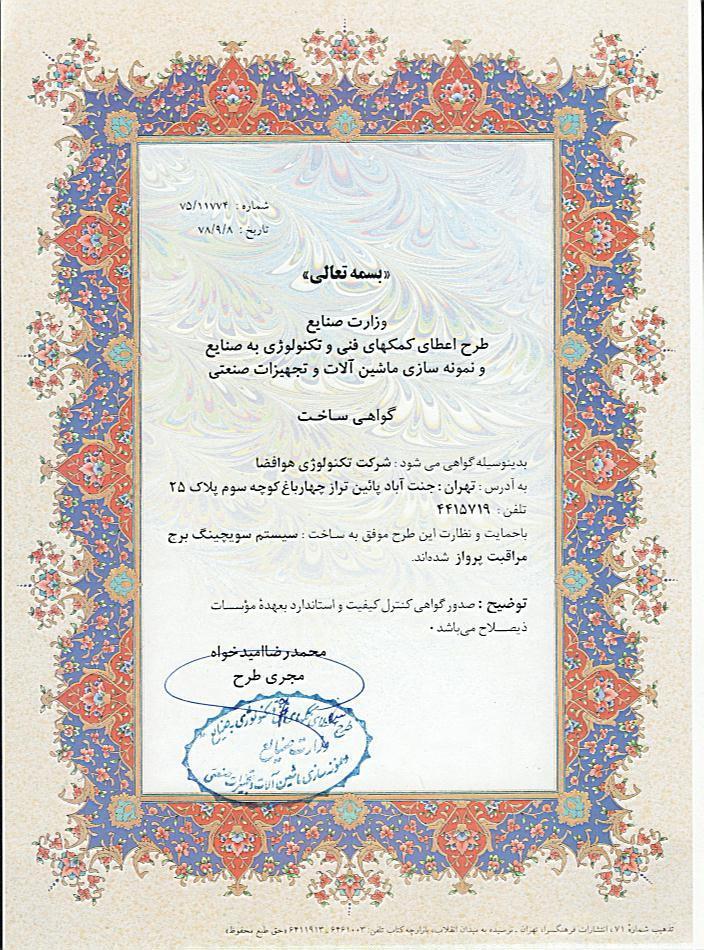 شماره : ۷۵/۱۱۷۷۴
تاریخ : ۷۸/۹/۸
«بسمه تعالی»
وزارت صنایع
طرح اعطای کمکهای فنی و تکنولوژی به صنایع
و نمونه سازی ماشین آلات و تجهیزات صنعتی
گواهی ساخت
بدینوسیله گواهی می شود : شرکت تکنولوژی هوافضا
به آدرس : تهران : جنت آباد پائین تراز چهارباغ کوچه سوم پلاک ۲۵
تلفن : ۴۴۱۵۷۱۹
باحمایت و نظارت این طرح موفق به ساخت : سیستم سویچینگ برج
مراقبت پرواز شده‌اند.
توضیح : صدور گواهی کنترل کیفیت و استاندارد بعهدهٔ مؤسسات
ذیصـــلاح می‌باشد .
محمدرضا امیدخواه
مجری طرح
طرح اعطای کمکهای فنی و تکنولوژی به صنایع
وزارت صنایع
و نمونه سازی ماشین آلات و تجهیزات صنعتی
تذهیب شمارهٔ ۷۱، انتشارات فرهنگسرا، تهران ـ نرسیده به میدان انقلاب، بازارچه کتاب تلفن: ۶۴۶۱۰۰۳ ـ ۶۴۱۱۹۱۳ «حق طبع محفوظ»